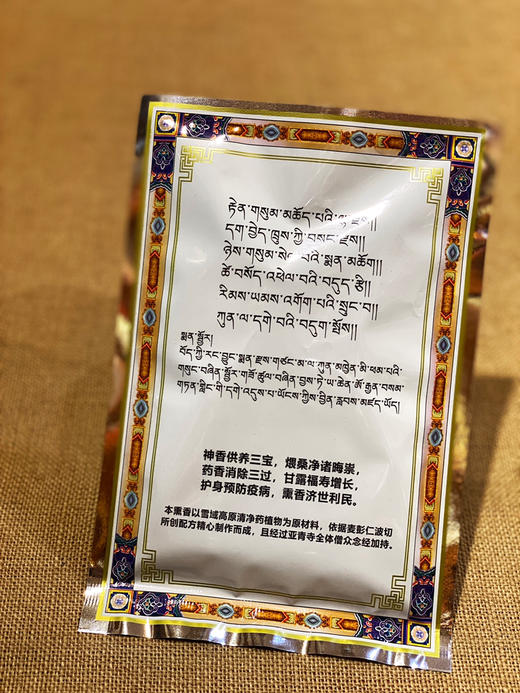 རྟེན་གསུམ་མཆོད་པའི་ལྷ་རྫས།།
དག་བྱེད་ཁྲུས་ཀྱི་བསང་རྫས།།
ཉེས་གསུམ་སེལ་བའི་སྨན་མཆོག།
ཚེ་བསོད་འཕེལ་བའི་བདུད་རྩི།
རིམས་ཡམས་འགོག་པའི་སྲུང་བ།།
ཀུན་ལ་དགེ་བའི་བདུག་སྤོས།།
སྨན་སྦྱོར།
བོད་ཀྱི་རང་བྱུང་སྨན་རྫས་གཙང་མ་ལ་ཀུན་མཁྱེན་མི་ཕམ་པའི་
གསུང་བཞིན་སྦྱོར་གཟོ་ཚུལ་བཞིན་བྱས་ཏེ་ཡ་ཆེན་ཨོ་རྒྱན་བསམ་
གཏན་གླིང་གི་དགེ་འདུས་པ་ཡོངས་ཀྱིས་བྱིན་རླབས་མཛད་ཡོད།
神香供养三宝，煨桑净诸晦祟，
药香消除三过，甘露福寿增长，
护身预防疫病，熏香济世利民。
本熏香以雪域高原清净药植物为原材料，依据麦彭仁波切
所创配方精心制作而成，且经过亚青寺全体僧众念经加持。